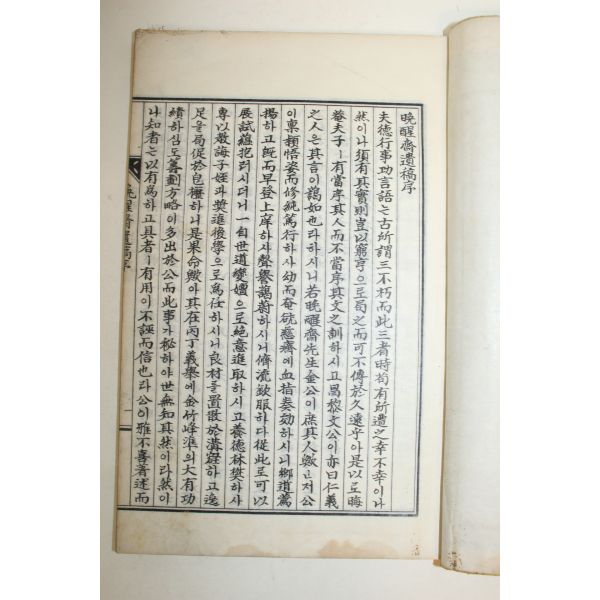 晩醒齋遺稿序
夫德行事功言語之古所謂三不朽而此三者時苟有所遭之幸不幸이나
然이나須有其實則豈以窮亨으로局之而可不傳於久遠乎아是以로晦
菴夫子ㅣ有當序其人而不當序其文之訓하시고昌黎文公이亦曰仁義
之人은其言이藹如也라하시니若晩醒齋先生金公이庶其人歟ㄴ저公
이稟穎悟姿而修純篤行하사幼而奄欲慈齋에血指奏効하시니鄕道薦
揚하고旣而早登上庠하사聲譽藹蔚하시니儕流欽服하다從此로可以
展試蘊抱러시더니一自世道變嬗으로絶意進取하시고養德林樊하사
專以敎誨子姪과奬進後學으로爲任하시니良材를置散於溝壑하고逸
足을局促於皂櫪하니是果命歟아其在丙丁義擧에金竹峰準의大有功
績하심도籌劃方略이多出於公而此事가秘하야世無知其然이라然이
나知者는以有爲하고具者ㅣ有用이不誣而信也라公이雅不喜著述而
晩醒齋遺稿序
一